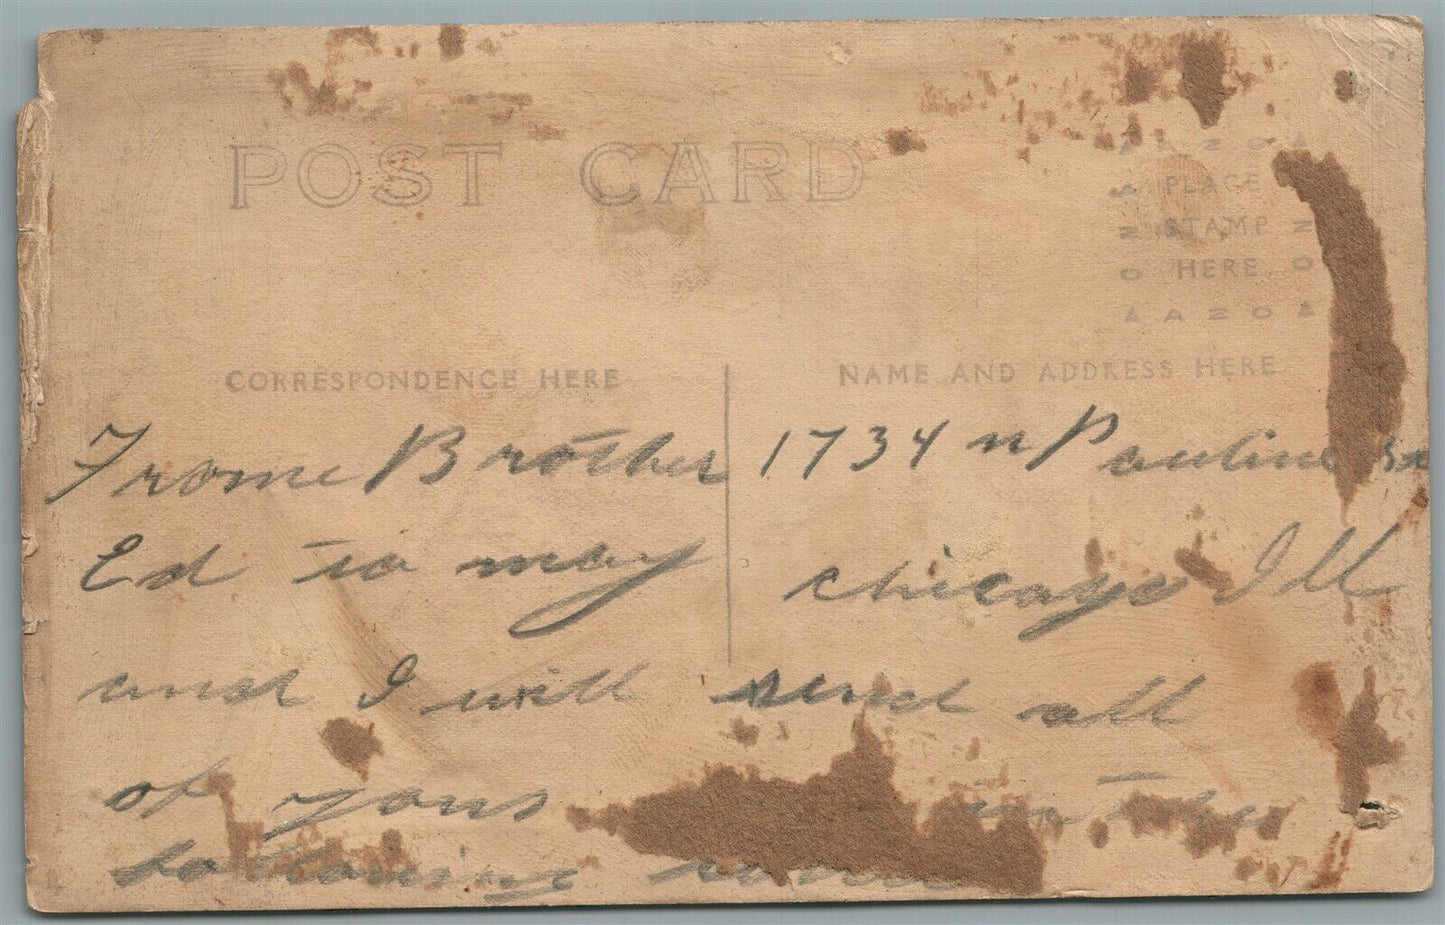 POST CARD
AZO
PLACE
STAMP
HERE
AZO
CORRESPONDENCE HERE
NAME AND ADDRESS HERE
Frome Brother 1734 n Pauline
Ed to may chicago Ill
and I will send all
of yous